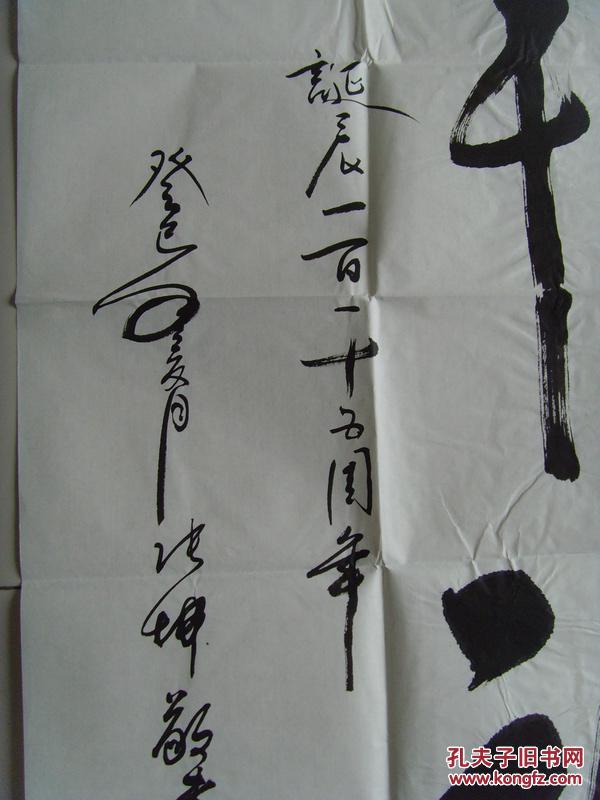 誕辰一百一十五周年
癸巳 月 张坤 敬
孔夫子旧书网
www.kongfz.com